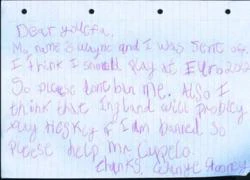 Dear yuefa.
My name is wayne and I was sent off.
I think I should play at Euro 2012
So please dont ban me. Also I
think that Ingland will probley
play Heskey if I am banned. So
please help mr Cappelo
thanks, Wayne Rooney